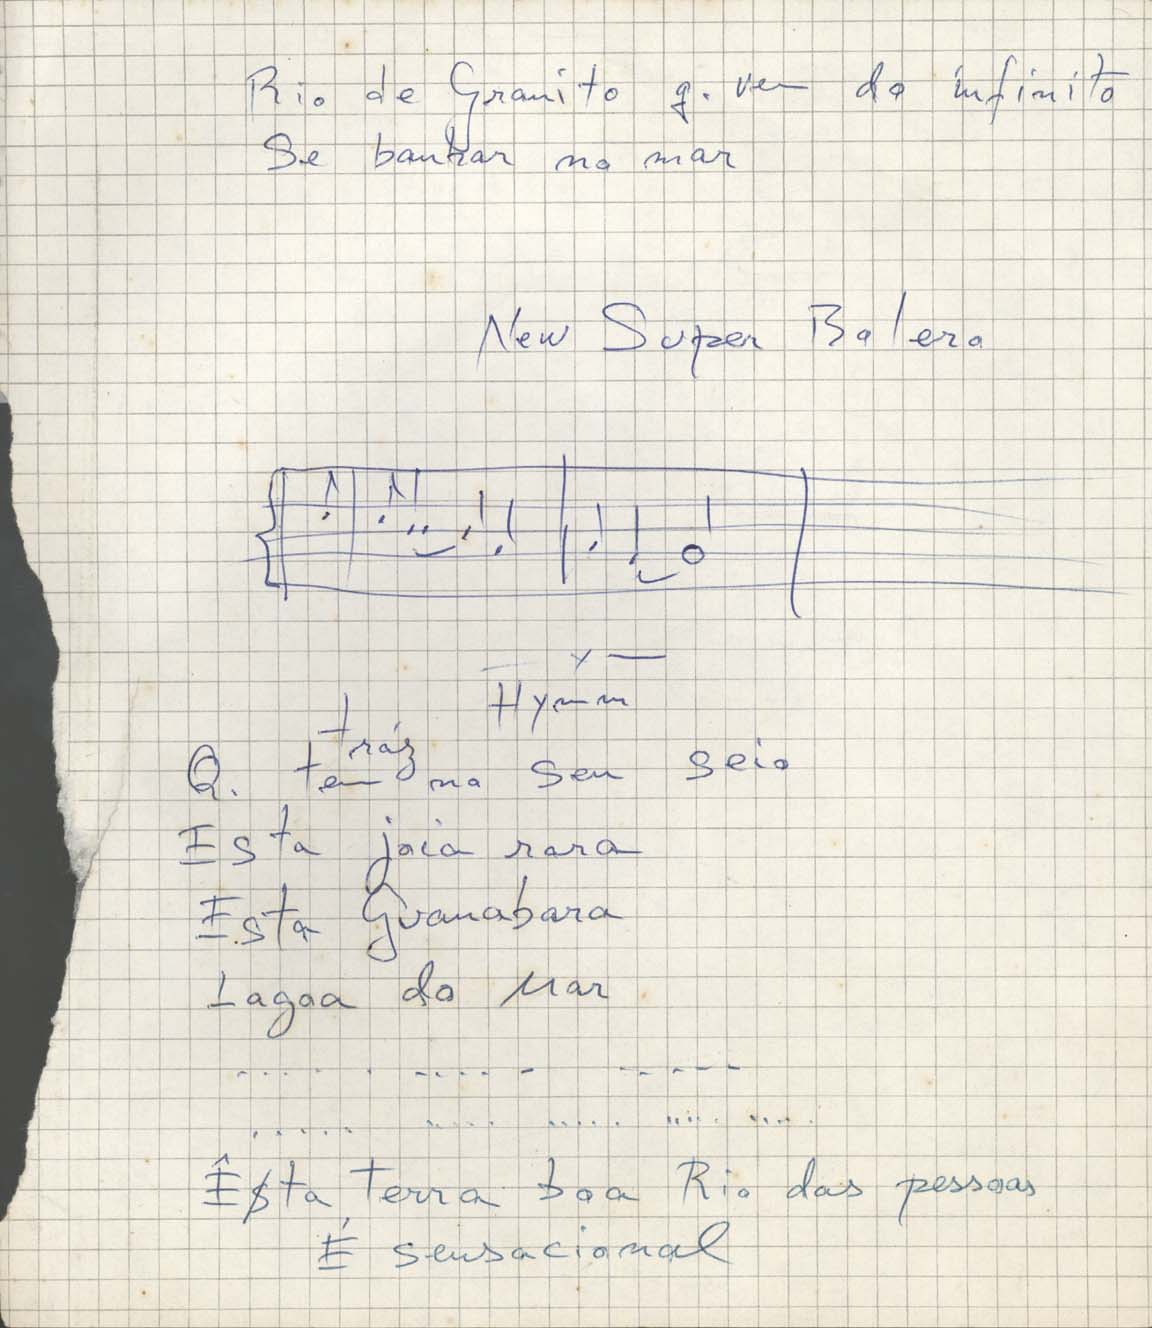 Rio de Granito q. vem do infinito
Se banhar no mar
New Super Balera
Hymm
tráz
Q. tem no seu seio
Esta joia rara
Esta Guanabara
Lagoa do Mar
Esta terra boa Rio das pessoas
É sensacional